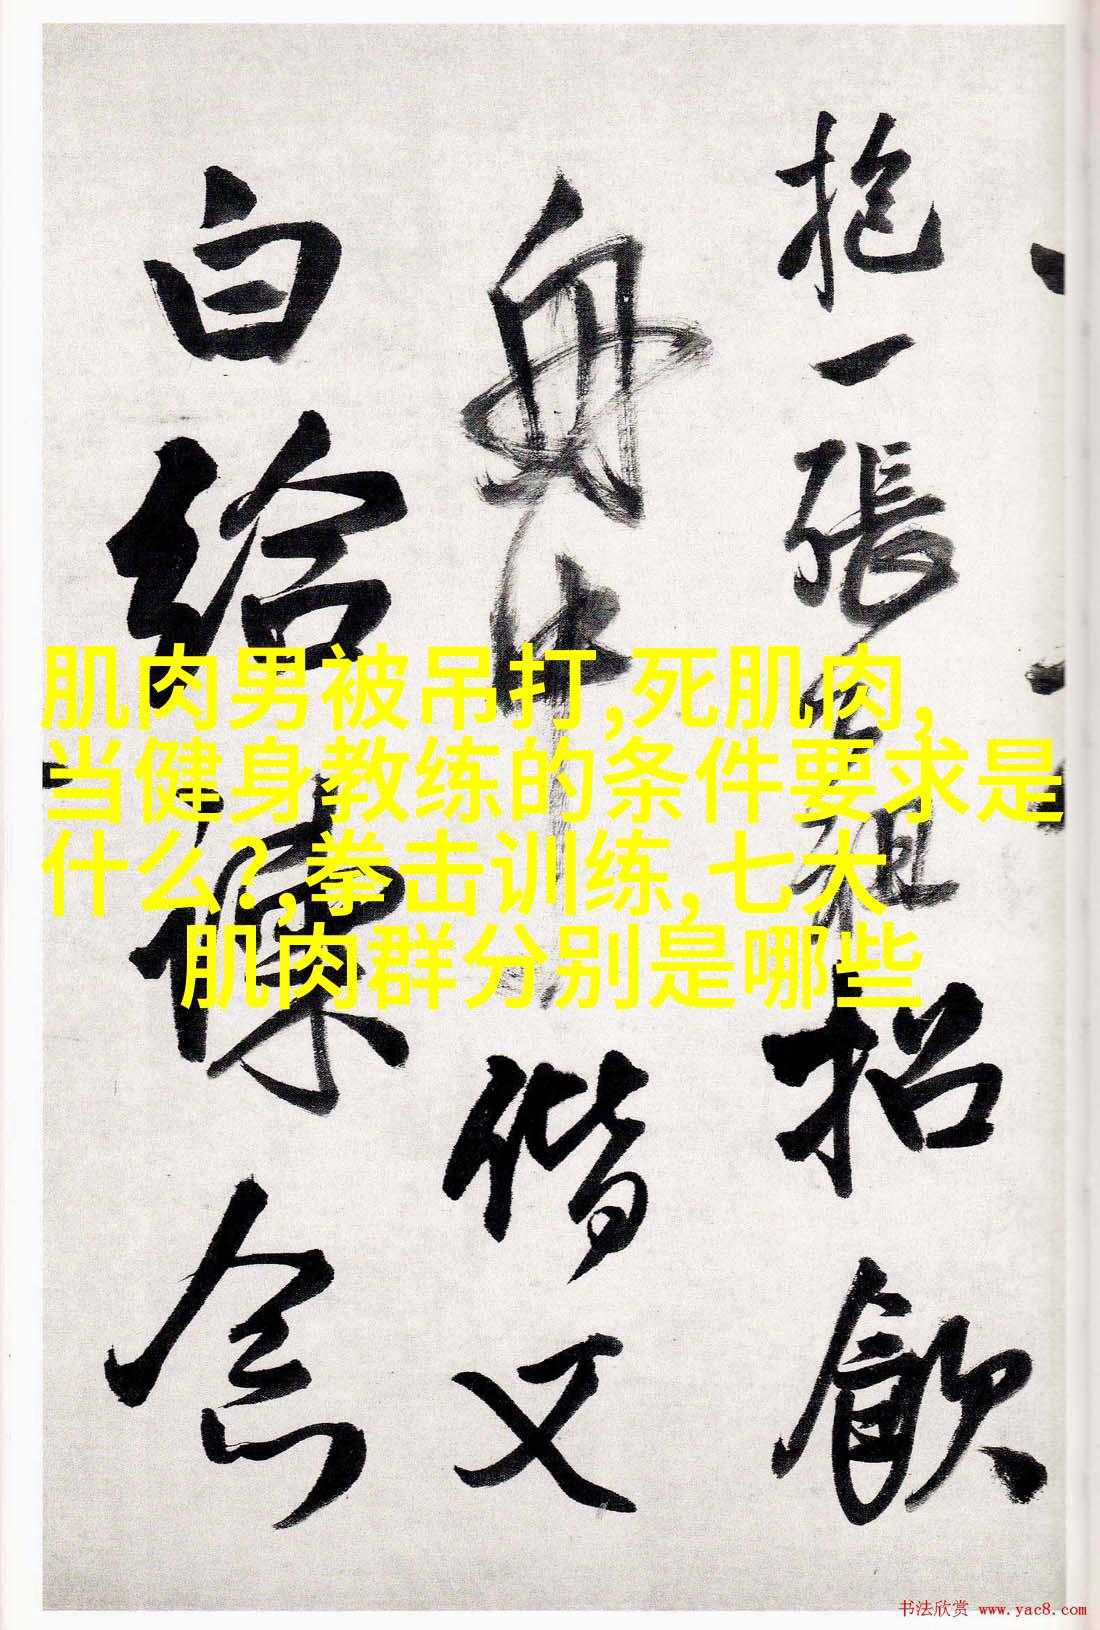 抱一張
祖招飲
舟中
偕又
白給諫念
肌肉男被吊打,死肌肉,
当健身教练的条件要求是
什么?,拳击训练,七大
肌肉群分别是哪些
书法欣赏 www.yac8.com